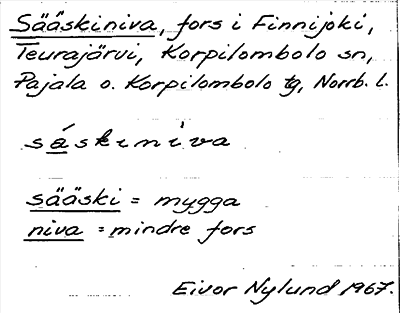 Sääskiniva, fors i Finnijoki,
Teurajärvi, Korpilombolo sn,
Pajala o. Korpilombolo tg, Norrb. l.
sáskiniva
sääski = mygga
niva = mindre fors
Eivor Nylund 1967.